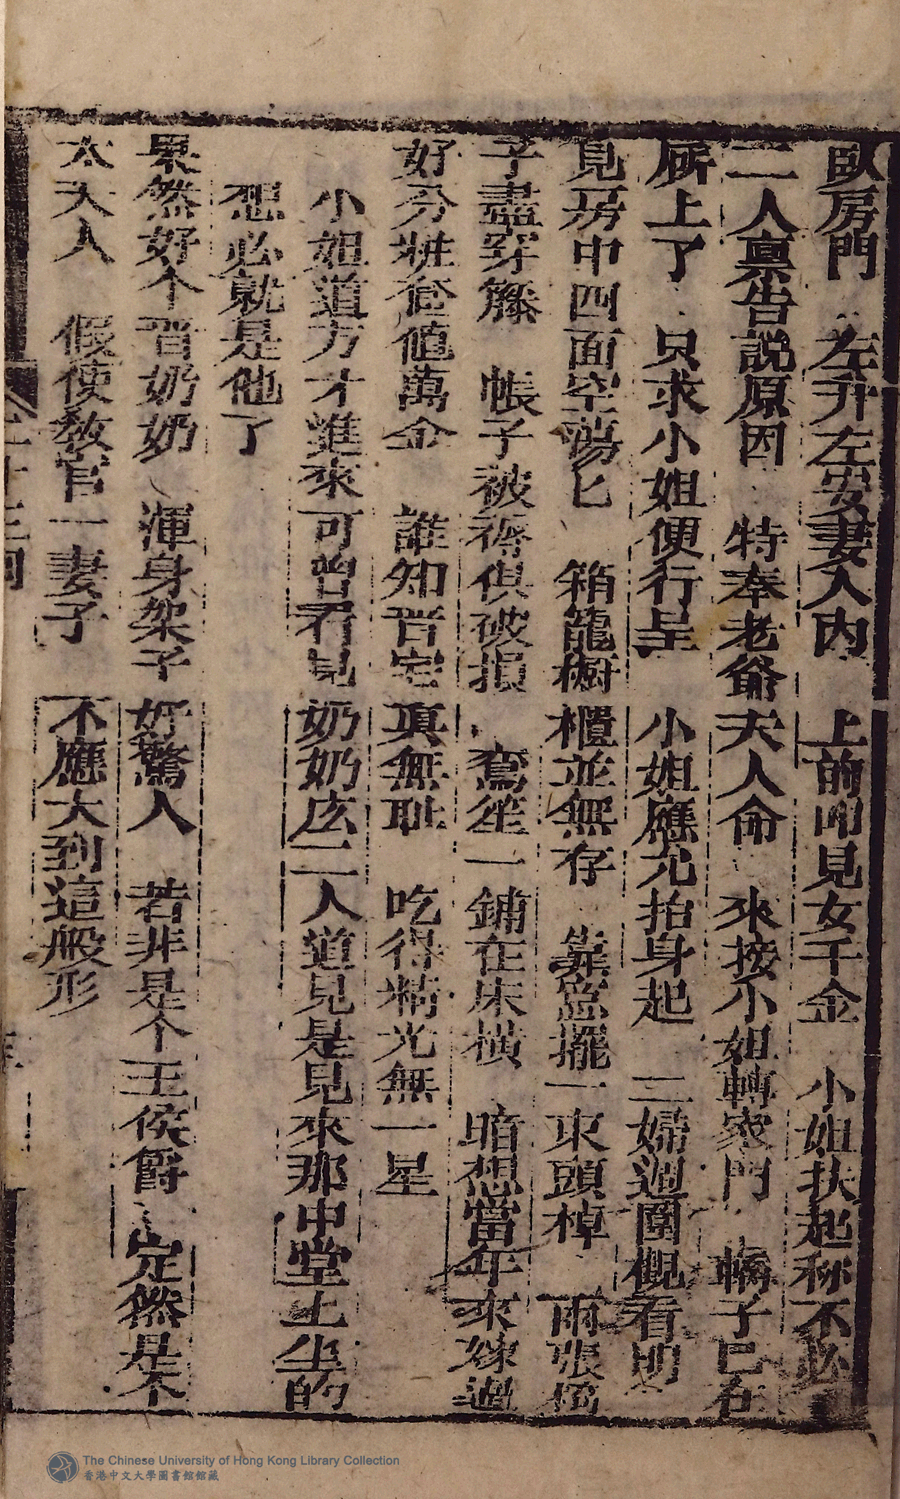 臥房門 左升左安妻入內 上前叩見女千金 小姐扶起称不必
二人禀告說原因 特奉老爺夫人命 來接小姐轉家門 轎子已在
㕔上了 只求小姐便行呈 小姐應允抬身起 二婦週圍概看明
見房中四面空蕩匕 箱籠橱櫃並無存 擺一東頭棹 兩張
子盡穿籐 帳子被褥俱破損 鴛笙一鋪在床橫 暗想當年來嫁過
好分粧奩值萬金 誰知晋宅真無耻 吃得精光無一星
小姐道方才進來可曾看見奶奶庅二人道見是見來那中堂上坐的
想必就是他了
果然好个晋奶奶 渾身架子好驚人 若非是个王侯爵 定然是个
太夫人 假使教官一妻子 不應大到這般形
The Chinese University of Hong Kong Library Collection
香港中文大學圖書館館藏